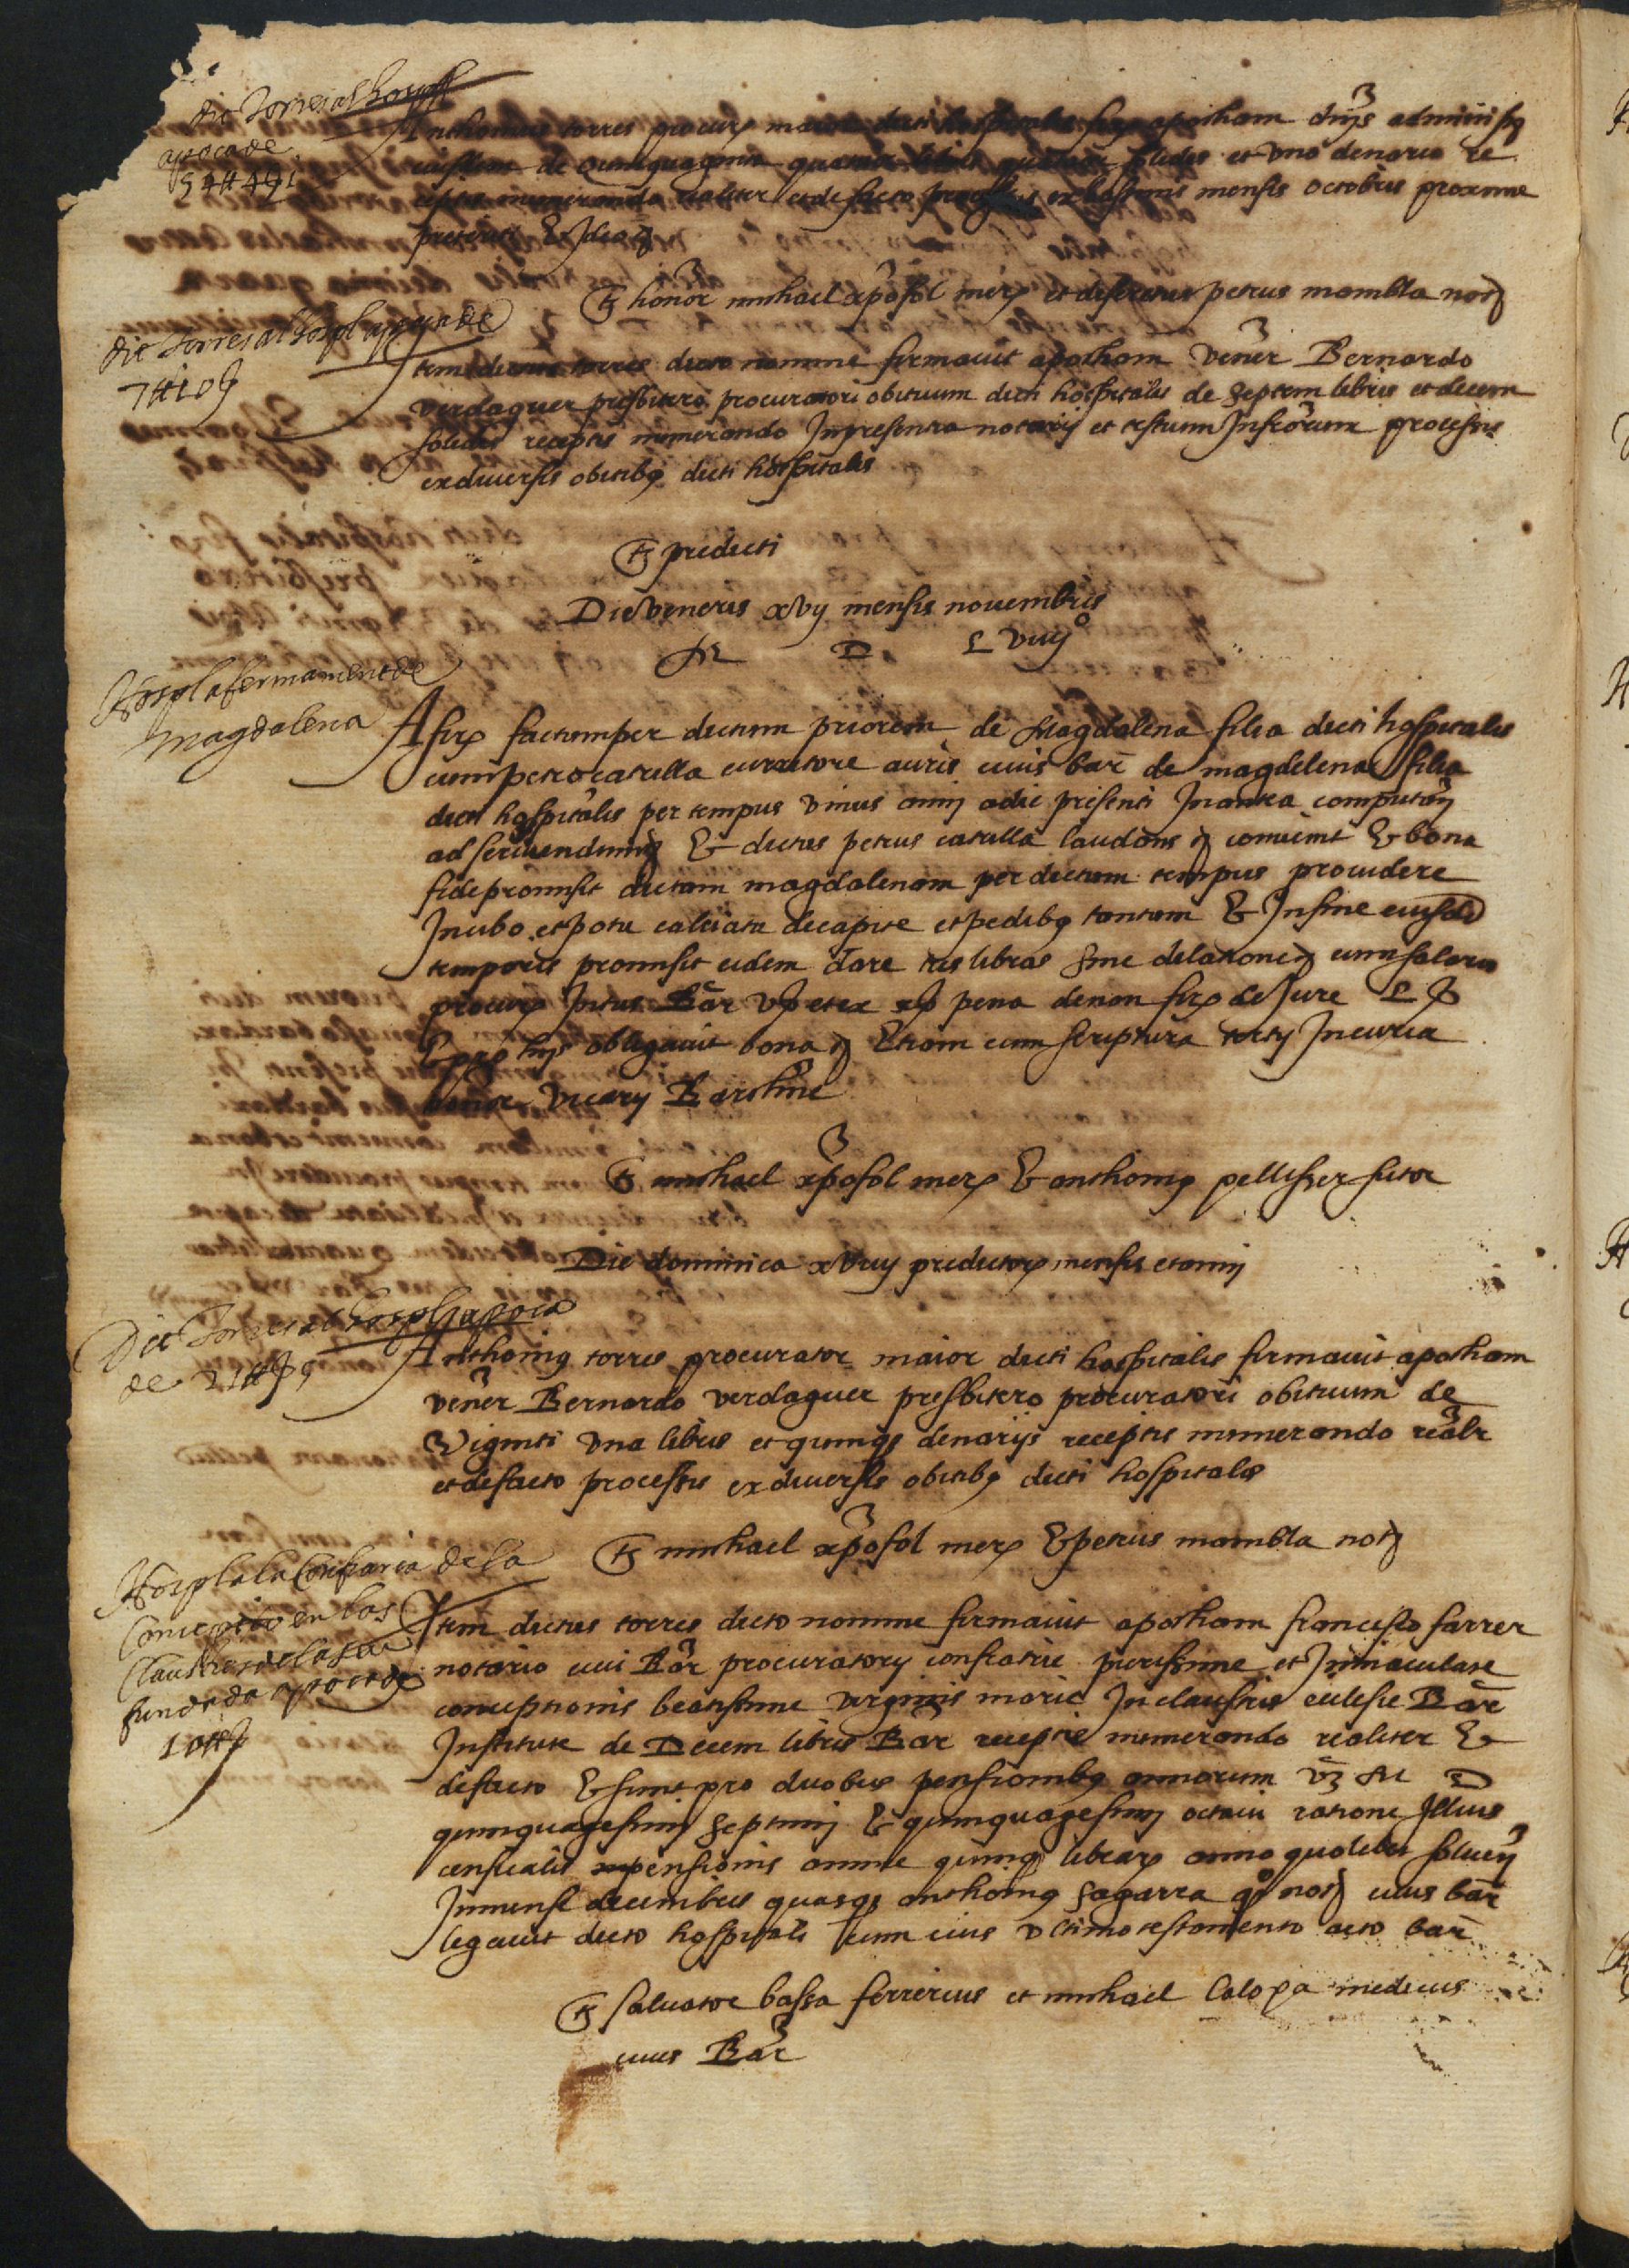 dit Torres al hospl
apoca de
54 ## 4 ß 1
Anthonius torres procur maior dicti hospitalis firmavit apocham dnis administ
de quinquaginta quatuor libris quatuor solidis et uno denario re
ceptis numerando realiter et de facto mensis octobris proxime
preteriti & Ideo
Ts honor michael xpofol mer et discretus petrus mambla not
dit torres al hospl apoca de
7 ## 10 ß
Item dictus torres dicto nomine firmavit apocham vener Bernardo
verdaguer presbitero procuratori obituum dicti hospitalis de septem libris et decem
solidis receptis numerando In presentia notarij et testium Infrorum processis
ex diversis obitibq dicti hospitalis
Ts predicti
Die veneris xvij mensis novembris
M D L viiijº
Hospl afermament de
magdalena
Afir factum per dictum priorem de Magdalena filia dicti hospitalis
cum petro catulla curritore auris civis bar de magdelena filia
dicti hospitalis per tempus unius anni a die presenti In antea computan
ad serviendum & dictus petrus catulla laudans convenit & bona
fide promisit dictam magdalenam per dictum tempus providere
In cibo et potu calciatu de capite et pedibq tantum & In fine eiusde
temporis promisit eidem dare tres libras sine dilatione cum salario
procur Intus Bar vß et ex xß pena de non fir de Jure L ß
& pro his obligavit bona Etiam cum scriptura tertij In curia
honor vicarij Barchne
Ts michael xpofol mer & anthoniq pellisser sutor
Die dominica xviiij predictor mensis et anni
Dit Torres al hospl apoca
de 21 ## ß 5
Anthoniq torres procurator maior dicti hospitalis firmavit apocham
vener Bernardo verdaguer presbitero procuratori obituum de
Viginti una libris et quinqs denarijs receptis numerando realr
et de facto processis ex diversis obitibq dicti hospitalis
Ts michael xpofol mer & petrus mambla not
Hospl a la Confraria de la
Concepcio en las
Claustres de la seu
fundada apoca de
10 ## ß
Item dictus torres dicto nomine firmavit apocham francisco farrer
notario civi Bar procuratory confratrie purissime et Inmaculate
conceptionis beatissime virginis marie In claustris ecclesie Bar
Institute de Decem libris Bar receptis numerando realiter &
de facto & sunt pro duobus pensionibq annorum vz M D
quinquagesimj septimj & quinquagesimj octavi ratione Illius
censualis pensionis annue quinq librar anno quolibet solven
In mense decembris quasqs anthoniq sagarra qº not civis bar
legavit dicto hospitali cum eius ultimo testamento acto bar
Ts salvator bassa ferrerius et michael calopa medicus
cives Bar